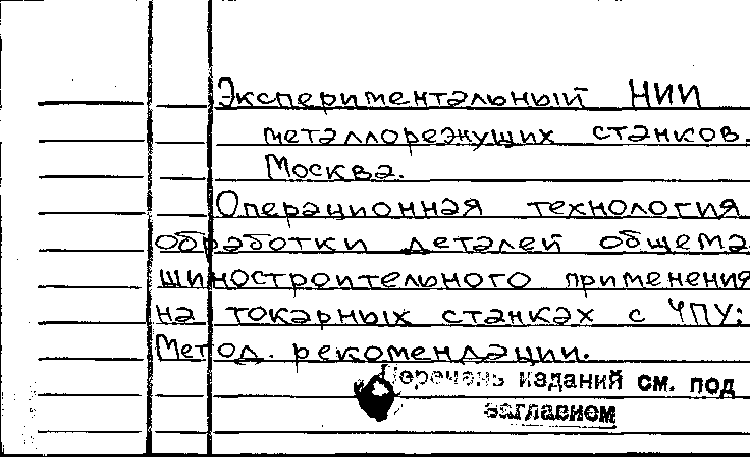 Экспериментальный НИИ
металлорежущих станков.
Москва.
Операционная технология
обработки деталей общема
шиностроительного применения
на токарных станках с ЧПУ:
Метод. рекомендации.
Перечень изданий см. под
заглавием